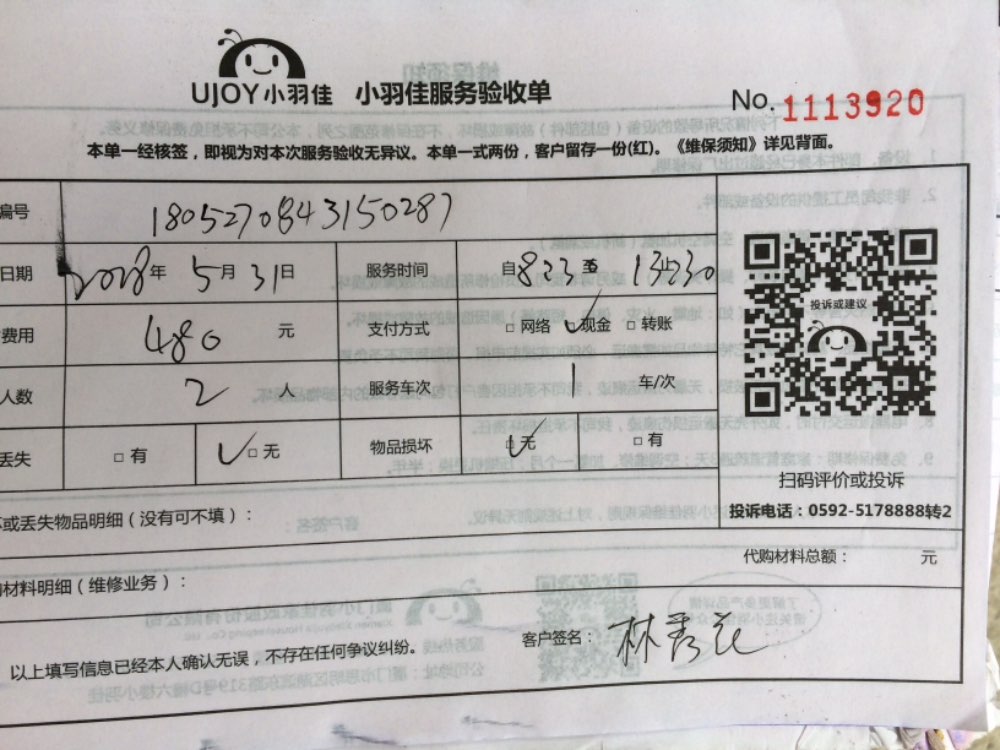 UJOY小羽佳 小羽佳服务验收单
No. 1113920
本单一经核签，即视为对本次服务验收无异议。本单一式两份，客户留存一份(红)。《维保须知》详见背面。
编号 1805270843150287
日期 2018年 5月 31日 服务时间 自 823 至 13点30
费用 480 元 支付方式 □ 网络 ✓现金 □ 转账
人数 2 人 服务车次 1 车/次
丢失 □ 有 ✓□ 无 物品损坏 ✓无 □ 有
投诉或建议
扫码评价或投诉
投诉电话：0592-5178888转2
坏或丢失物品明细（没有可不填）：
代购材料总额： 元
材料明细（维修业务）：
客户签名：林秀花
以上填写信息已经本人确认无误，不存在任何争议纠纷。